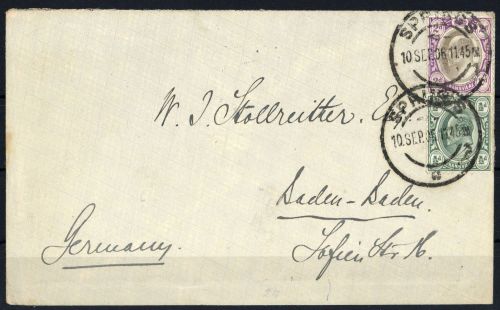 SPRINGS
10 SEP. 06 11.45 AM
SPRINGS
10. SEP. 06 11.45 AM
W. J. Stollreitter, E
Baden-Baden.
Germany.
Sofien Str.